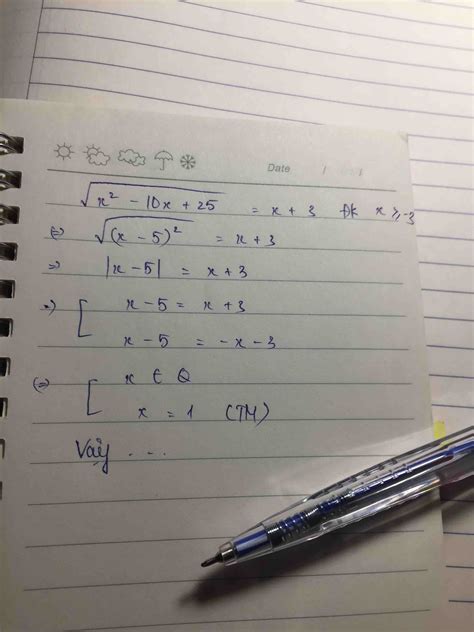 Date / /
√(x² - 10x + 25) = x + 3 Đk x ≥ -3
(=) √((x - 5)²) = x + 3
=> |x - 5| = x + 3
=) [ x - 5 = x + 3
x - 5 = -x - 3
(=) [ x ∈ Q
x = 1 (TM)
Vậy ...